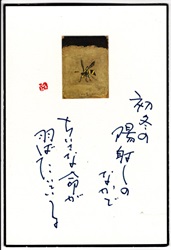 初冬の
陽射しの
なかで
ちいさな命が
羽ばたいている